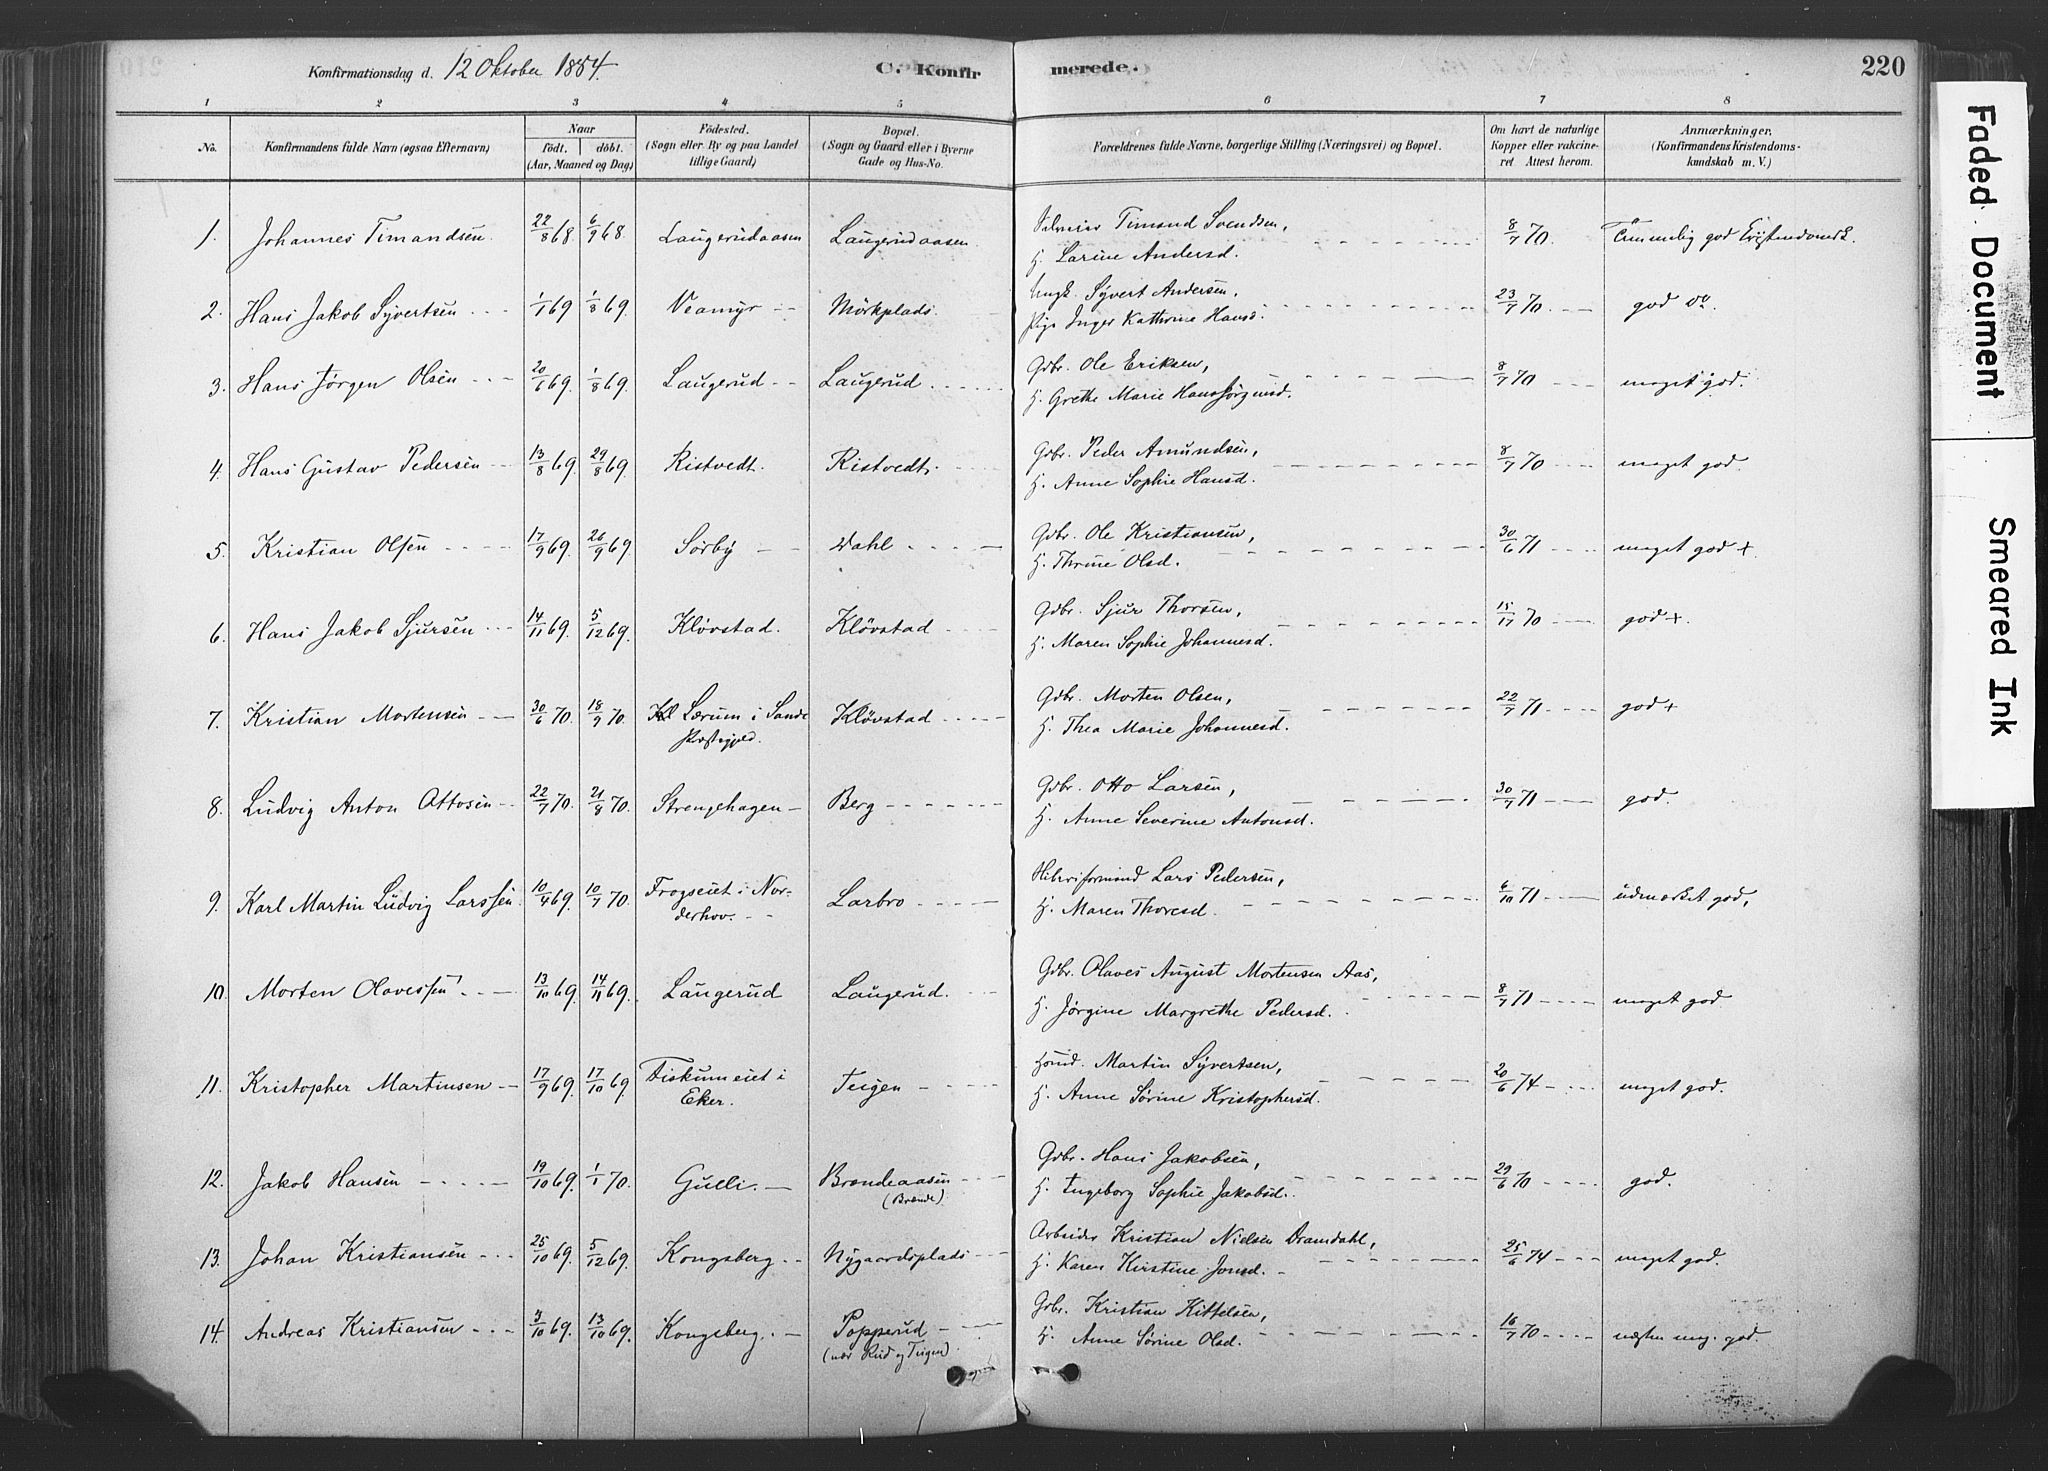 Konfirmationsdag d. 12 Oktober 1884. C. Konfirmerede. 220
1 2 3 4 5 6 7 8
No. Konfirmandens fulde Navn (ogsaa Efternavn) Naar født. døbt. (Aar, Maaned og Dag) Fødested. (Sogn eller By og paa Landet tillige Gaard) Bopæl. (Sogn og Gaard eller i Byerne Gade og Hus-No. Forældrenes fulde Navne, borgerlige Stilling (Næringsvei) og Bopæl. Om havt de naturlige Kopper eller vakcineret Attest herom. Anmærkninger. (Konfirmandens Kristendomskundskab m. V.)
1. Johannes Timandsen. 22/8 68. 6/9 68. Laugerudaasen Laugerudaasen Timand Svendsen, 8/7 70. Temmelig god
H. Larine Andersd.
2. Hans Jakob Syvertsen 1/1 69 1/8 69. Veamyr Mörkplads. Ungk. Syvert Andersen, 23/7 70 god do.
Pige Inger Kathrine Hansd.
3. Hans Jørgen Olsen 20/6 69. 1/8 69. Laugerud Laugerud Gdbr. Ole Eriksen, 8/7 70 meget god.
H. Grethe Marie Hansjørgensd.
4. Hans Gustav Pedersen 13/8 69. 29/8 69. Ristvedt. Ristvedt. Gdbr. Peder Amundsen, 8/7 70 meget god.
H. Anne Sophie Hansd.
5. Kristian Olsen 17/9 69. 26/9 69. Sørby Wahl Gdbr. Ole Kristiansen, 30/6 71 meget god +.
H. Thrine Olsd.
6. Hans Jakob Sjursen 14/11 69. 5/12 69. Kløvstad. Kløvstad Gdbr. Sjur Thorsen, 70 god +.
H. Maren Sophie Johannesd.
7. Kristian Mortensen 30/6 70. 18/9 70. Lærum i Sande Kløvstad Gdbr. Morten Olsen, 22/7 71 god +
Præstegjeld. H. Thea Marie Johannesd.
8. Ludvig Anton Ottosen 22/7 70. 21/8 70. Strengehagen Berg Gdbr. Otto Larsen, 30/7 71 god.
H. Anne Severine Antonsd.
9. Karl Martin Ludvig Larssen 10/4 69. 10/7 70. Frogseiet i Nor- Larbro Lars Pedersen, 6/10 71 udmærket god,
derhov. H. Maren Thoresd.
10. Morten Olavessen 13/10 69. 14/11 69. Laugerud Laugerud. Gdbr. Olaves August Mortensen Aas, 8/7 71 meget god
H. Jørgine Margrethe Pedersd.
11. Kristopher Martinsen 17/9 69. 17/10 69. Fiskumeiet i Teigen Martin Syvertsen, 20/6 74 meget god.
Eker. H. Anne Sørine Kristophersd.
12. Jakob Hansen 19/10 69. 1/1 70. Gulli. Brændeaasen Gdbr. Hans Jakobsen, 29/6 70 god.
(Brænde). H. Ingeborg Sophie Jakobsd.
13. Johan Kristiansen 25/10 69. 5/12 69. Kongsberg Nygaardsplads Arbeider Kristian Nielsen Dramdahl, 25/6 74 meget god.
H. Karen Kirstine Jonsd.
14. Andreas Kristiansen 3/10 69. 13/10 69. Kongsberg. Popperud Gdbr. Kristian Kittelsen, 16/7 70 næsten meg. god.
(nær Rud og Teigen). H. Anne Sørine Olsd.
Faded Document
Smeared Ink